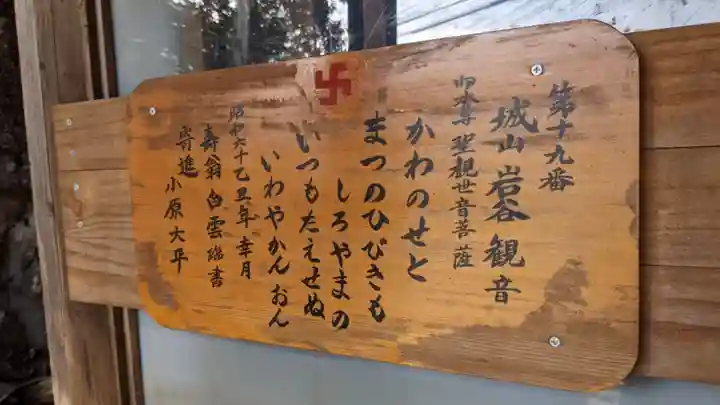 第十九番
城山 岩谷観音
御本尊 聖観世音菩薩
かわのせと
まつのひびきも
しろやまの
いつもたえせぬ
いわやかんおん
昭和六十乙丑年 幸月
寿翁 白雲 謹書
寄進 小原大平
卐